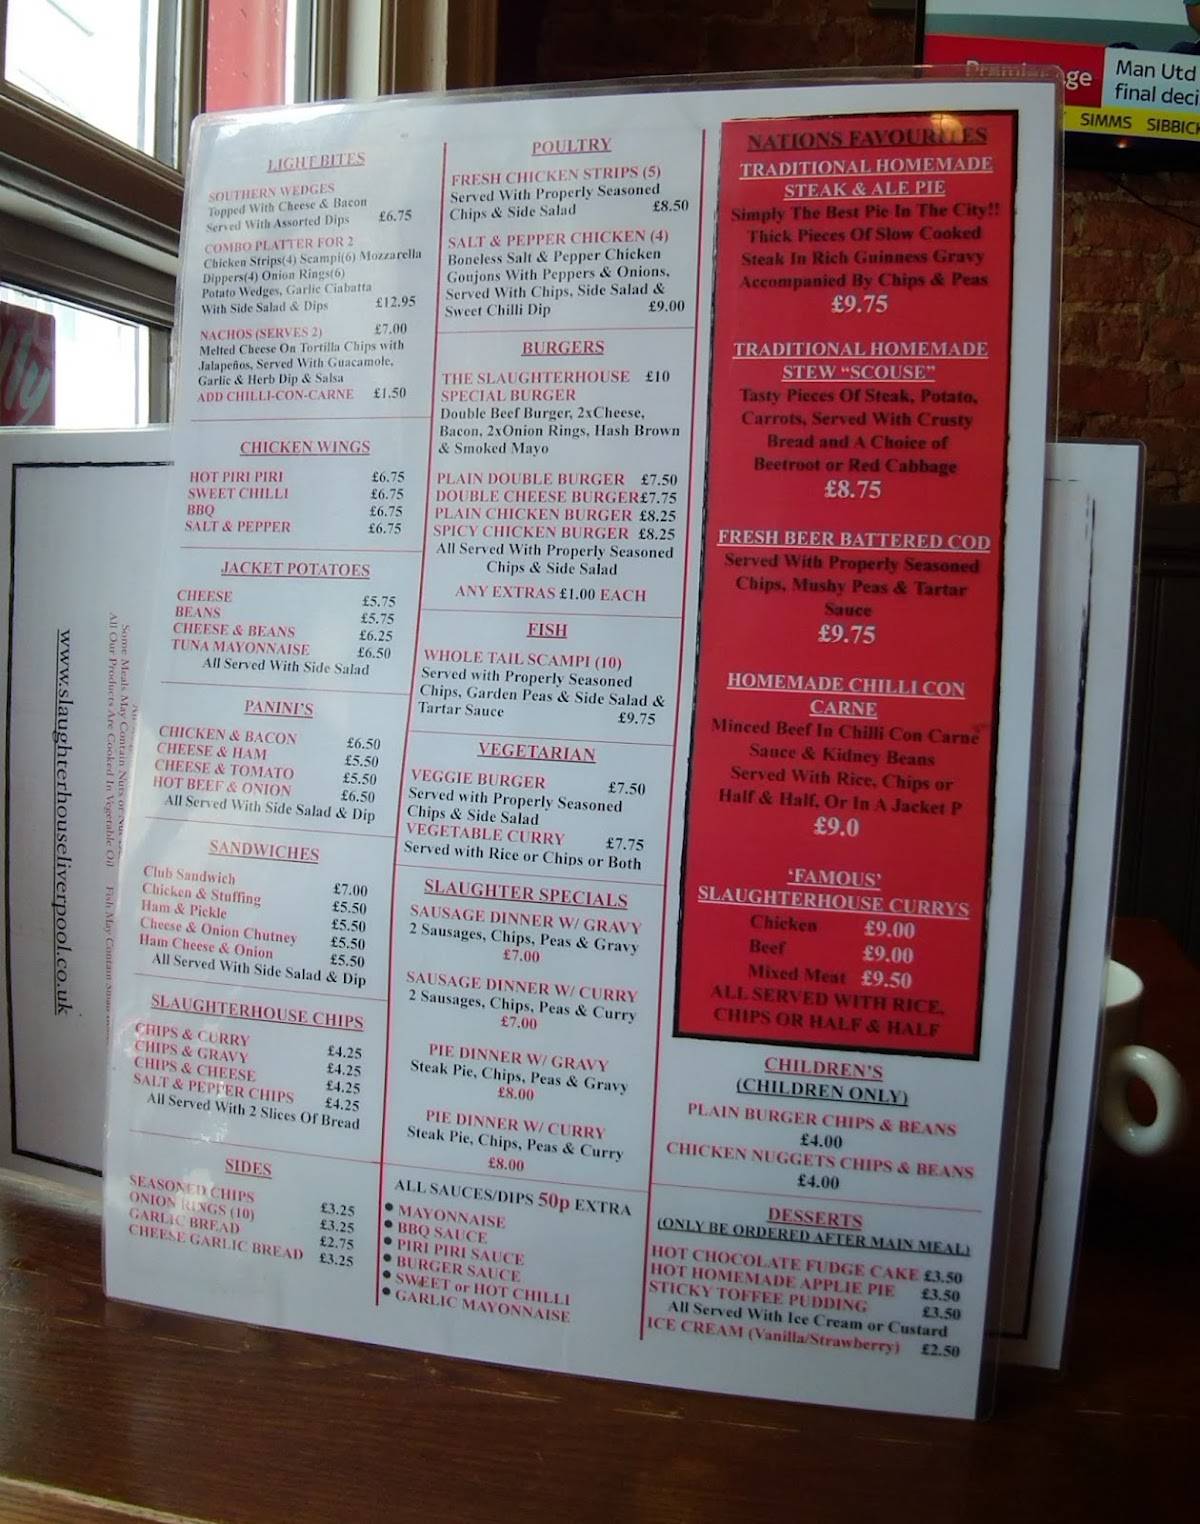 LIGHT BITES
SOUTHERN WEDGES
Topped With Cheese & Bacon
Served With Assorted Dips £6.75
COMBO PLATTER FOR 2
Chicken Strips(4) Scampi(6) Mozzarella
Dippers(4) Onion Rings(6)
Potato Wedges, Garlic Ciabatta
With Side Salad & Dips £12.95
NACHOS (SERVES 2) £7.00
Melted Cheese On Tortilla Chips with
Jalapeños, Served With Guacamole,
Garlic & Herb Dip & Salsa
ADD CHILLI-CON-CARNE £1.50
CHICKEN WINGS
HOT PIRI PIRI £6.75
SWEET CHILLI £6.75
BBQ £6.75
SALT & PEPPER £6.75
JACKET POTATOES
CHEESE £5.75
BEANS £5.75
CHEESE & BEANS £6.25
TUNA MAYONNAISE £6.50
All Served With Side Salad
PANINI'S
CHICKEN & BACON £6.50
CHEESE & HAM £5.50
CHEESE & TOMATO £5.50
HOT BEEF & ONION £6.50
All Served With Side Salad & Dip
SANDWICHES
Club Sandwich £7.00
Chicken & Stuffing £5.50
Ham & Pickle £5.50
Cheese & Onion Chutney £5.50
Ham Cheese & Onion £5.50
All Served With Side Salad & Dip
SLAUGHTERHOUSE CHIPS
CHIPS & CURRY £4.25
CHIPS & GRAVY £4.25
CHIPS & CHEESE £4.25
SALT & PEPPER CHIPS £4.25
All Served With 2 Slices Of Bread
SIDES
SEASONED CHIPS £3.25
ONION RINGS (10) £3.25
GARLIC BREAD £2.75
CHEESE GARLIC BREAD £3.25
POULTRY
FRESH CHICKEN STRIPS (5)
Served With Properly Seasoned
Chips & Side Salad £8.50
SALT & PEPPER CHICKEN (4)
Boneless Salt & Pepper Chicken
Goujons With Peppers & Onions,
Served With Chips, Side Salad &
Sweet Chilli Dip £9.00
BURGERS
THE SLAUGHTERHOUSE £10
SPECIAL BURGER
Double Beef Burger, 2xCheese,
Bacon, 2xOnion Rings, Hash Brown
& Smoked Mayo
PLAIN DOUBLE BURGER £7.50
DOUBLE CHEESE BURGER£7.75
PLAIN CHICKEN BURGER £8.25
SPICY CHICKEN BURGER £8.25
All Served With Properly Seasoned
Chips & Side Salad
ANY EXTRAS £1.00 EACH
FISH
WHOLE TAIL SCAMPI (10)
Served with Properly Seasoned
Chips, Garden Peas & Side Salad &
Tartar Sauce £9.75
VEGETARIAN
VEGGIE BURGER £7.50
Served with Properly Seasoned
Chips & Side Salad
VEGETABLE CURRY £7.75
Served with Rice or Chips or Both
SLAUGHTER SPECIALS
SAUSAGE DINNER W/ GRAVY
2 Sausages, Chips, Peas & Gravy
£7.00
SAUSAGE DINNER W/ CURRY
2 Sausages, Chips, Peas & Curry
£7.00
PIE DINNER W/ GRAVY
Steak Pie, Chips, Peas & Gravy
£8.00
PIE DINNER W/ CURRY
Steak Pie, Chips, Peas & Curry
£8.00
ALL SAUCES/DIPS 50p EXTRA
• MAYONNAISE
• BBQ SAUCE
• PIRI PIRI SAUCE
• BURGER SAUCE
• SWEET or HOT CHILLI
• GARLIC MAYONNAISE
NATIONS FAVOURITES
TRADITIONAL HOMEMADE
STEAK & ALE PIE
Simply The Best Pie In The City!!
Thick Pieces Of Slow Cooked
Steak In Rich Guinness Gravy
Accompanied By Chips & Peas
£9.75
TRADITIONAL HOMEMADE
STEW “SCOUSE”
Tasty Pieces Of Steak, Potato,
Carrots, Served With Crusty
Bread and A Choice of
Beetroot or Red Cabbage
£8.75
FRESH BEER BATTERED COD
Served With Properly Seasoned
Chips, Mushy Peas & Tartar
Sauce
£9.75
HOMEMADE CHILLI CON
CARNE
Minced Beef In Chilli Con Carne
Sauce & Kidney Beans
Served With Rice, Chips or
Half & Half, Or In A Jacket P
£9.0
‘FAMOUS’
SLAUGHTERHOUSE CURRYS
Chicken £9.00
Beef £9.00
Mixed Meat £9.50
ALL SERVED WITH RICE,
CHIPS OR HALF & HALF
CHILDREN'S
(CHILDREN ONLY)
PLAIN BURGER CHIPS & BEANS
£4.00
CHICKEN NUGGETS CHIPS & BEANS
£4.00
DESSERTS
(ONLY BE ORDERED AFTER MAIN MEAL)
HOT CHOCOLATE FUDGE CAKE £3.50
HOT HOMEMADE APPLIE PIE £3.50
STICKY TOFFEE PUDDING £3.50
All Served With Ice Cream or Custard
ICE CREAM (Vanilla/Strawberry) £2.50
Some Meals May Contain Nuts or
All Our Products Are Cooked In Vegetable Oil Fish May Contain
www.slaughterhouseliverpool.co.uk
Man Utd
final deci
SIMMS SIBBICK